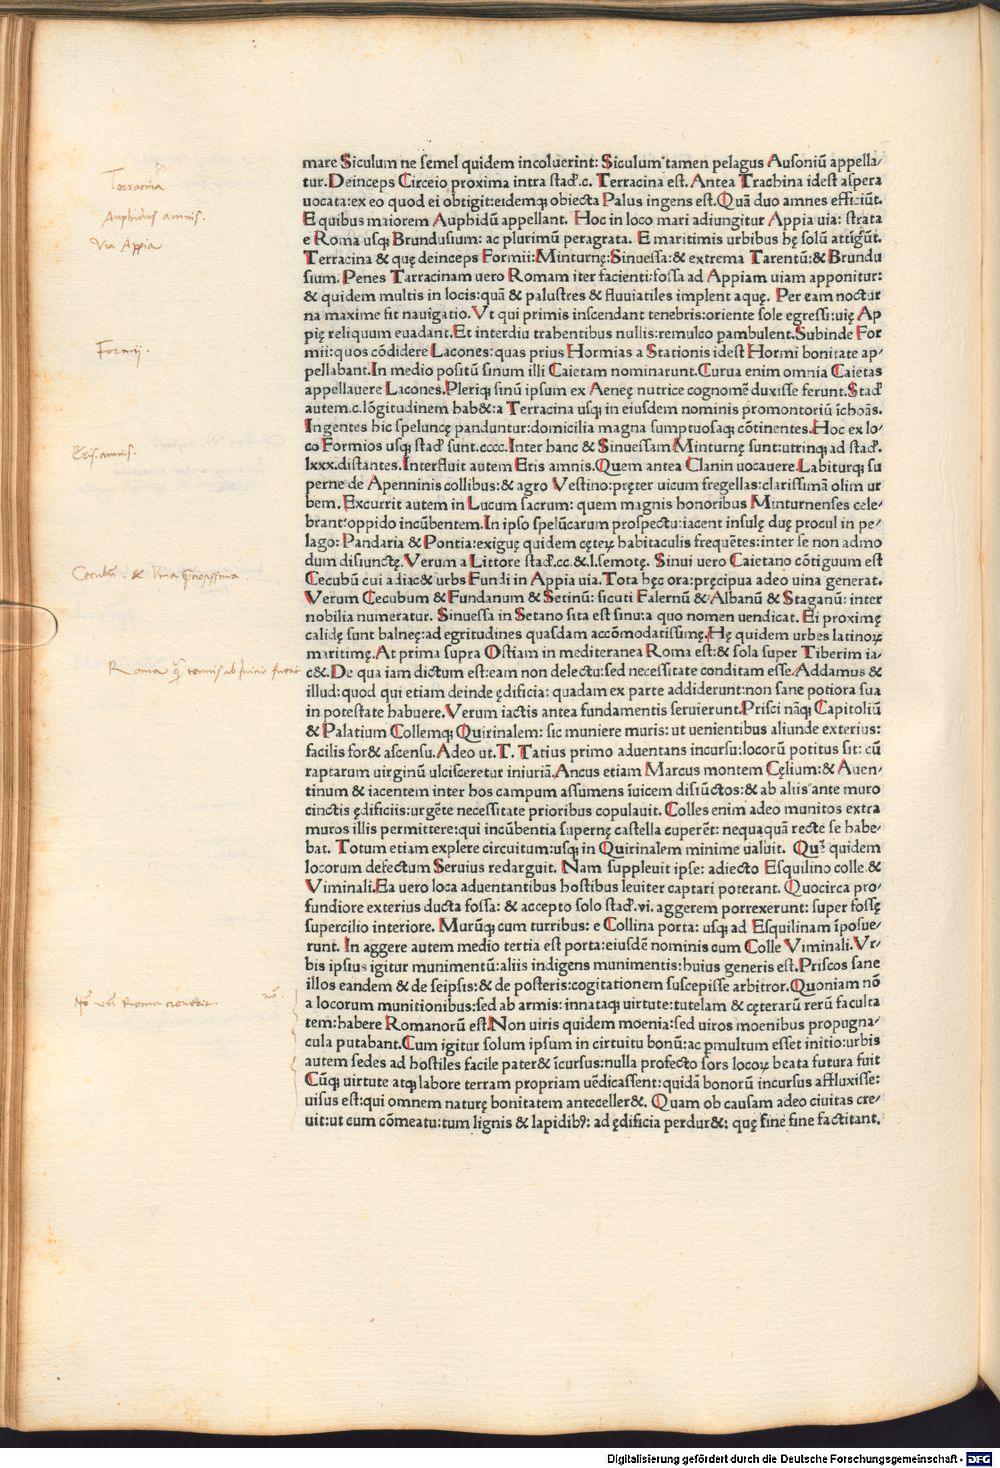 Terracina
Auphidus amnis.
Via Appia
Formij.
Eris. amnis.
Cecubũ. & Vina
Roma
Roma
mare Siculum ne semel quidem incoluerint: Siculum tamen pelagus Ausoniũ appella/
tur. Deinceps Circeio proxima intra stad. c. Terracina est. Antea Trachina idest aspera
uocata: ex eo quod ei obtigit: eidemq; obiecta Palus ingens est. Quã duo amnes efficiũt.
E quibus maiorem Auphidũ appellant. Hoc in loco mari adiungitur Appia uia: strata
e Roma usq; Brundusium: ac plurimũ peragrata. E maritimis urbibus hę solũ attigũt.
Terracina & quę deinceps Formii: Minturnę: Sinuessa: & extrema Tarentũ: & Brundu
sium. Penes Tarracinam uero Romam iter facienti: fossa ad Appiam uiam apponitur:
& quidem multis in locis: quã & palustres & fluuiatiles implent aquę. Per eam noctur
na maxime fit nauigatio. Vt qui primis inscendant tenebris: oriente sole egressi: uię Ap
pię reliquum euadant. Et interdiu trahentibus mulis: remulco pambulent. Subinde For
mii: quos cõdidere Lacones: quas prius Hormias a Stationis idest Hormi bonitate ap/
pellabant. In medio positũ sinum illi Caietam nominarunt. Curua enim omnia Caietas
appellauere Lacones. Pleriq; sinũ ipsum ex Aeneę nutrice cognomẽ duxisse ferunt. Stad
autem. c. lõgitudinem hab&: a Terracina usq; in eiusdem nominis promontoriũ ĩchoãs.
Ingentes hic speluncę panduntur: domicilia magna sumptuosaq; cõtinentes. Hoc ex lo/
co Formios usq; stad sunt. cccc. Inter hanc & Sinuessam Minturnę sunt: utrinq; ad stad.
lxxx. distantes. Interfluit autem Eris amnis. Quem antea Clanin uocauere. Labiturq; su
perne de Apenninis collibus: & agro Vestino: pręter uicum fregellas: clarissimã olim ur
bem. Excurrit autem in Lucum sacrum: quem magnis honoribus Minturnenses cele/
brant: oppido incũbentem. In ipso spelũcarum prospectu: iacent insulę duę procul in pe/
lago: Pandaria & Pontia: exiguę quidem cęteꝝ habitaculis frequẽtes: inter se non admo
dum disiunctę. Verum a Littore stad. cc. & .l. semotę. Sinui uero Caietano cõtiguum est
Cecubũ cui adiac& urbs Fundi in Appia uia. Tota hęc ora: pręcipua adeo uina generat.
Verum Cecubum & Fundanum & Setinũ: sicuti Falernũ & Albanũ & Staganũ: inter
nobilia numeratur. Sinuessa in Setano sita est sinu: a quo nomen uendicat. Ei proximę
calidę sunt balneę: ad egritudines quasdam accõmodatissimę. Hę quidem urbes latinoꝝ
maritimę. At prima supra Ostiam in mediteranea Roma est: & sola super Tiberim ia/
c&. De qua iam dictum est: eam non delectu: sed necessitate conditam esse. Addamus &
illud: quod qui etiam deinde ędificia: quadam ex parte addiderunt: non sane potiora sua
in potestate habuere. Verum iactis antea fundamentis seruierunt. Prisci nãq; Capitoliũ
& Palatium Collemq; Quirinalem: sic muniere muris: ut uenientibus aliunde exterius:
facilis for& ascensu. Adeo ut. T. Tatius primo aduentans incursu: locorũ potitus sit: cũ
raptarum uirginũ ulcisceretur iniuriã. Ancus etiam Marcus montem Cęlium: & Auen/
tinum & iacentem inter hos campum assumens ĩuicem disiũctos: & ab aliis ante muro
cinctis ędificiis: urgẽte necessitate prioribus copulauit. Colles enim adeo munitos extra
muros illis permittere: qui incũbentia supernę castella cuperẽt: nequaquã recte se habe/
bat. Totum etiam explere circuitum: usq; in Quirinalem minime ualuit. quidem
locorum defectum Seruius redarguit. Nam suppleuit ipse: adiecto Esquilino colle &
Viminali. Ea uero loca aduentantibus hostibus leuiter captari poterant. Quocirca pro/
fundiore exterius ducta fossa: & accepto solo stad. vi. aggerem porrexerunt: super fossę
supercilio interiore. Murũq; cum turribus: e Collina porta: usq; ad Esquilinam ĩposue/
runt. In aggere autem medio tertia est porta: eiusdẽ nominis cum Colle Viminali. Vr/
bis ipsius igitur munimentũ: aliis indigens munimentis: huius generis est. Priscos sane
illos eandem & de seipsis: & de posteris: cogitationem suscepisse arbitror. Quoniam nõ
a locorum munitionibus: sed ab armis: innataq; uirtute: tutelam & cęterarũ rerũ faculta
tem: habere Romanorũ est. Non uiris quidem moenia: sed uiros moenibus propugna/
cula putabant. Cum igitur solum ipsum in circuitu bonũ: ac pmultum esset initio: urbis
autem sedes ad hostiles facile pater& ĩcursus: nulla profecto sors locoꝝ beata futura fuit
Cũq; uirtute atq; labore terram propriam uẽdicassent: quidã bonorũ incursus affluxisse:
uisus est: qui omnem naturę bonitatem anteceller&. Quam ob causam adeo ciuitas cre/
uit: ut cum cõmeatu: tum lignis & lapidibꝰ: ad ędificia perdur&: quę sine fine factitant.
Digitalisierung gefördert durch die Deutsche Forschungsgemeinschaft - DFG